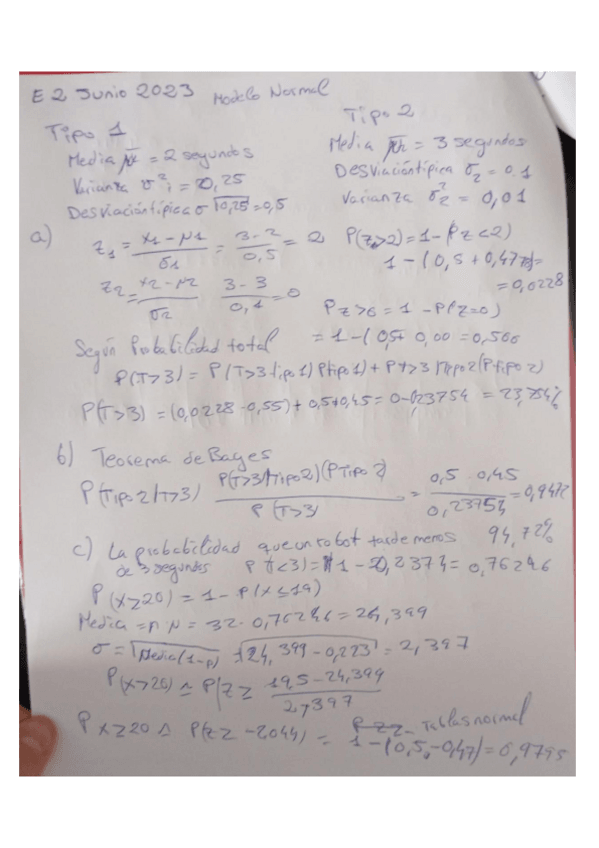 E 2 Junio 2023 Modelo Normal
Tipo 1
Media μ1 = 2 segundos
Varianza σ²1 = 0,25
Desviación típica σ √0,25 = 0,5
Tipo 2
Media μ2 = 3 segundos
Desviación típica σ2 = 0,1
Varianza σ²2 = 0,01
a) Z1 = (x1 - μ1)/σ1 = (3-2)/0,5 = 2 P(Z>2) = 1-(Pz<2)
1-(0,5+0,4772)=
= 0,0228
Z2 = (x2-μ2)/σ2 (3-3)/0,1 = 0
Pz>0 = 1 - P(z=0)
= 1-(0,5+0,00 = 0,500
Según Probabilidad total
P(T>3) = P(T>3 tipo 1) P tipo 1) + P t>3 / Tipo 2 (P tipo 2)
P(T>3) = (0,0228·0,55) + 0,5+0,45 = 0,23754 = 23,754%
b) Teorema de Bayes
P(Tipo 2/T>3) P(T>3/Tipo 2)(P Tipo 2) / P(T>3) = 0,5 0,45 / 0,23754 = 0,9472
94,72%
c) La probabilidad que un robot tarde menos
de 3 segundos P(t<3) = 1-0,2374 = 0,76246
P(x≥20) = 1 - P(x≤19)
Media = n μ = 32 · 0,76246 = 24,399
σ = √Media(1-p) √24,399-0,223 = 2,397
P(x>20) ≃ P(Z ≥ (19,5-24,399)/2,397
P x≥20 ≃ P(Z≥ -2044) = Tablas normal
1-(0,5,-0,47) = 0,9795